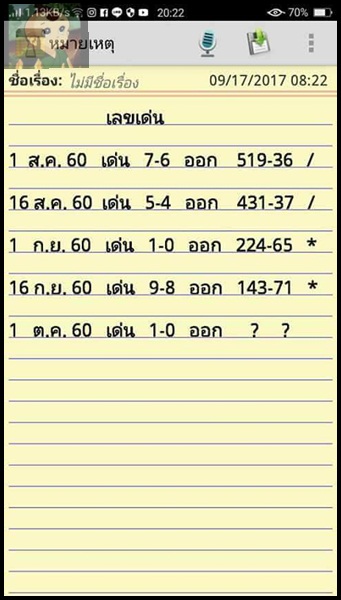 1.13KB/s 20:22 70%
หมายเหตุ
ชื่อเรื่อง: ไม่มีชื่อเรื่อง 09/17/2017 08:22
เลขเด่น
1 ส.ค. 60 เด่น 7-6 ออก 519-36 /
16 ส.ค. 60 เด่น 5-4 ออก 431-37 /
1 ก.ย. 60 เด่น 1-0 ออก 224-65 *
16 ก.ย. 60 เด่น 9-8 ออก 143-71 *
1 ต.ค. 60 เด่น 1-0 ออก ? ?